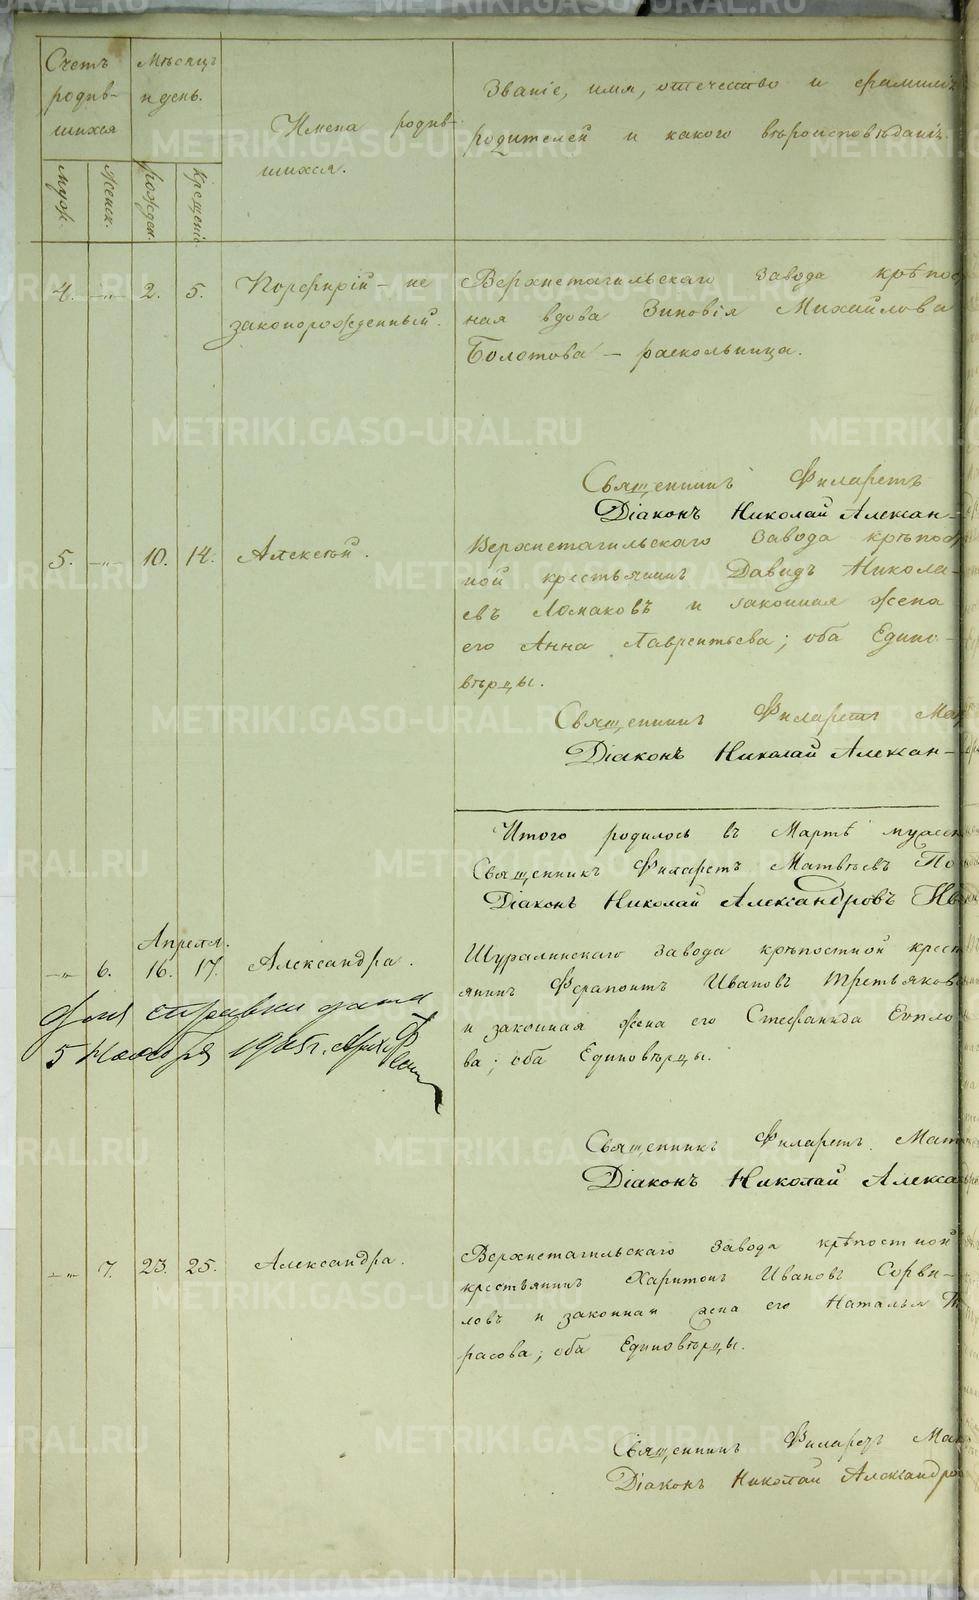 Счетъ родив-
шихся
Мѣсяцъ
и день.
Имена родив-
шихся.
Званіе, имя, отчество и фамилія
родителей и какого вѣроисповѣданія.
муж.
женск.
рожден.
крещенія
4. —"— 2. 5. Порфирій - не
законорожденный.
Верхнетагильскаго завода крѣпос
ная вдова Зиновія Михайлова
Болотова — раскольница.
Священникъ Филаретъ
Діаконъ Николай Алексан-
5. —"— 10. 14. Алексѣй.
Верхнетагильскаго завода крѣпост
ной крестьянинъ Давидъ Никола-
евъ Ломаковъ и законная жена
его Анна Лаврентьева; оба Едино-
вѣрцы.
Священникъ Филаретъ Мат
Діаконъ Николай Алексан-
Итого родилось въ Мартѣ мужеск
Священникъ Филаретъ Матвѣевъ По
Діаконъ Николай Александровъ
Апрель.
—"— 6. 16. 17. Александра.
Шуралинскаго завода крѣпостной крест
янинъ Ферапонтъ Ивановъ Третьяковъ
и законная жена его Стефанида Евпло
ва; оба Единовѣрцы.
справка дана
5 Ноября
Священникъ Филаретъ Мат
Діаконъ Николай Алекса
—"— 7. 23. 25. Александра.
Верхнетагильскаго завода крѣпостной
крестьянинъ Харитонъ Ивановъ Сорви-
ловъ и законная жена его Наталья Та
расова; оба Единовѣрцы.
Священникъ Филаретъ Мат
Діаконъ Николай Александро
METRIKI.GASO-URAL.RU